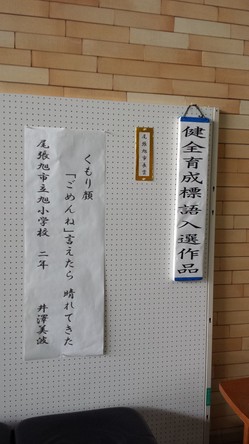 健全育成標語入選作品
尾張旭市長賞
くもり顔
「ごめんね」言えたら 晴れてきた
尾張旭市立旭小学校 二年 井澤美波